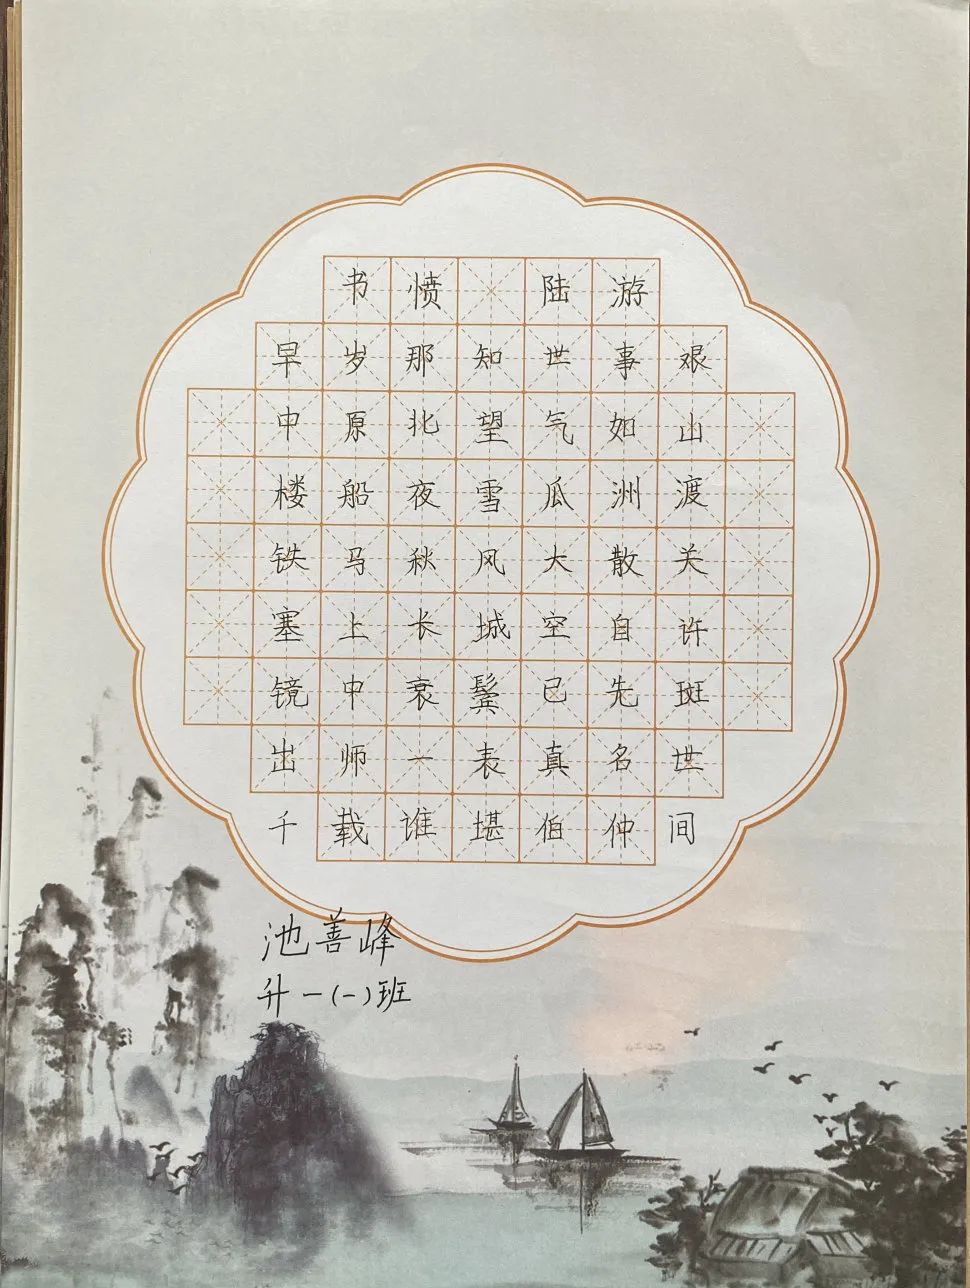 书愤 陆游
早岁那知世事艰
中原北望气如山
楼船夜雪瓜洲渡
铁马秋风大散关
塞上长城空自许
镜中衰鬓已先斑
出师一表真名世
千载谁堪伯仲间
池善峰
升一(一)班